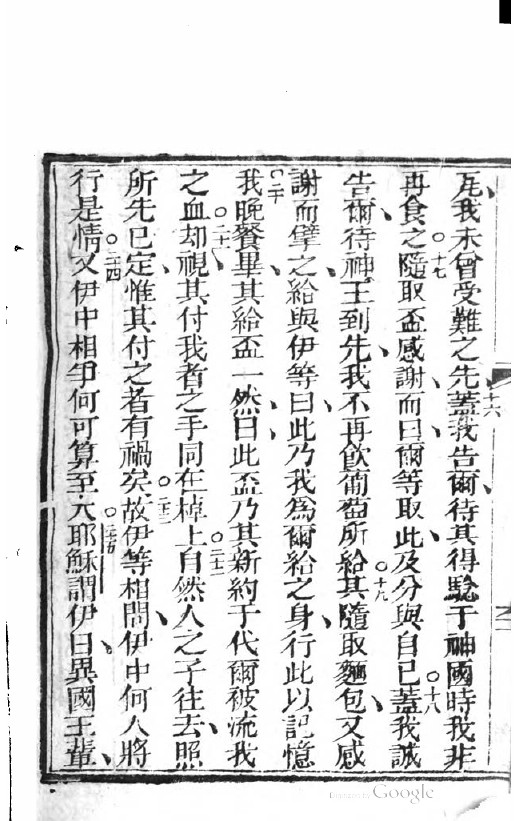 我未曾受難之先蓋我告爾待其得騐于神國時我非
十六
再食之隨取盃感謝而曰爾等取此及分與自己蓋我誠
十七
十八
告爾待神王到先我不再飲葡萄所給其隨取麵包又感
十九
謝而擘之給與伊等曰此乃我為爾給之身行此以記憶
我晚餐畢其給盃一然曰此盃乃其新約于代爾被流我
二十
之血却視其付我者之手同在棹上自然人之子往去照
二十一
二十二
所先已定惟其付之者有禍矣故伊等相問伊中何人將
二十三
行是情又伊中相爭何可算至大耶穌謂伊曰異國王輩
二十四
二十五
Google